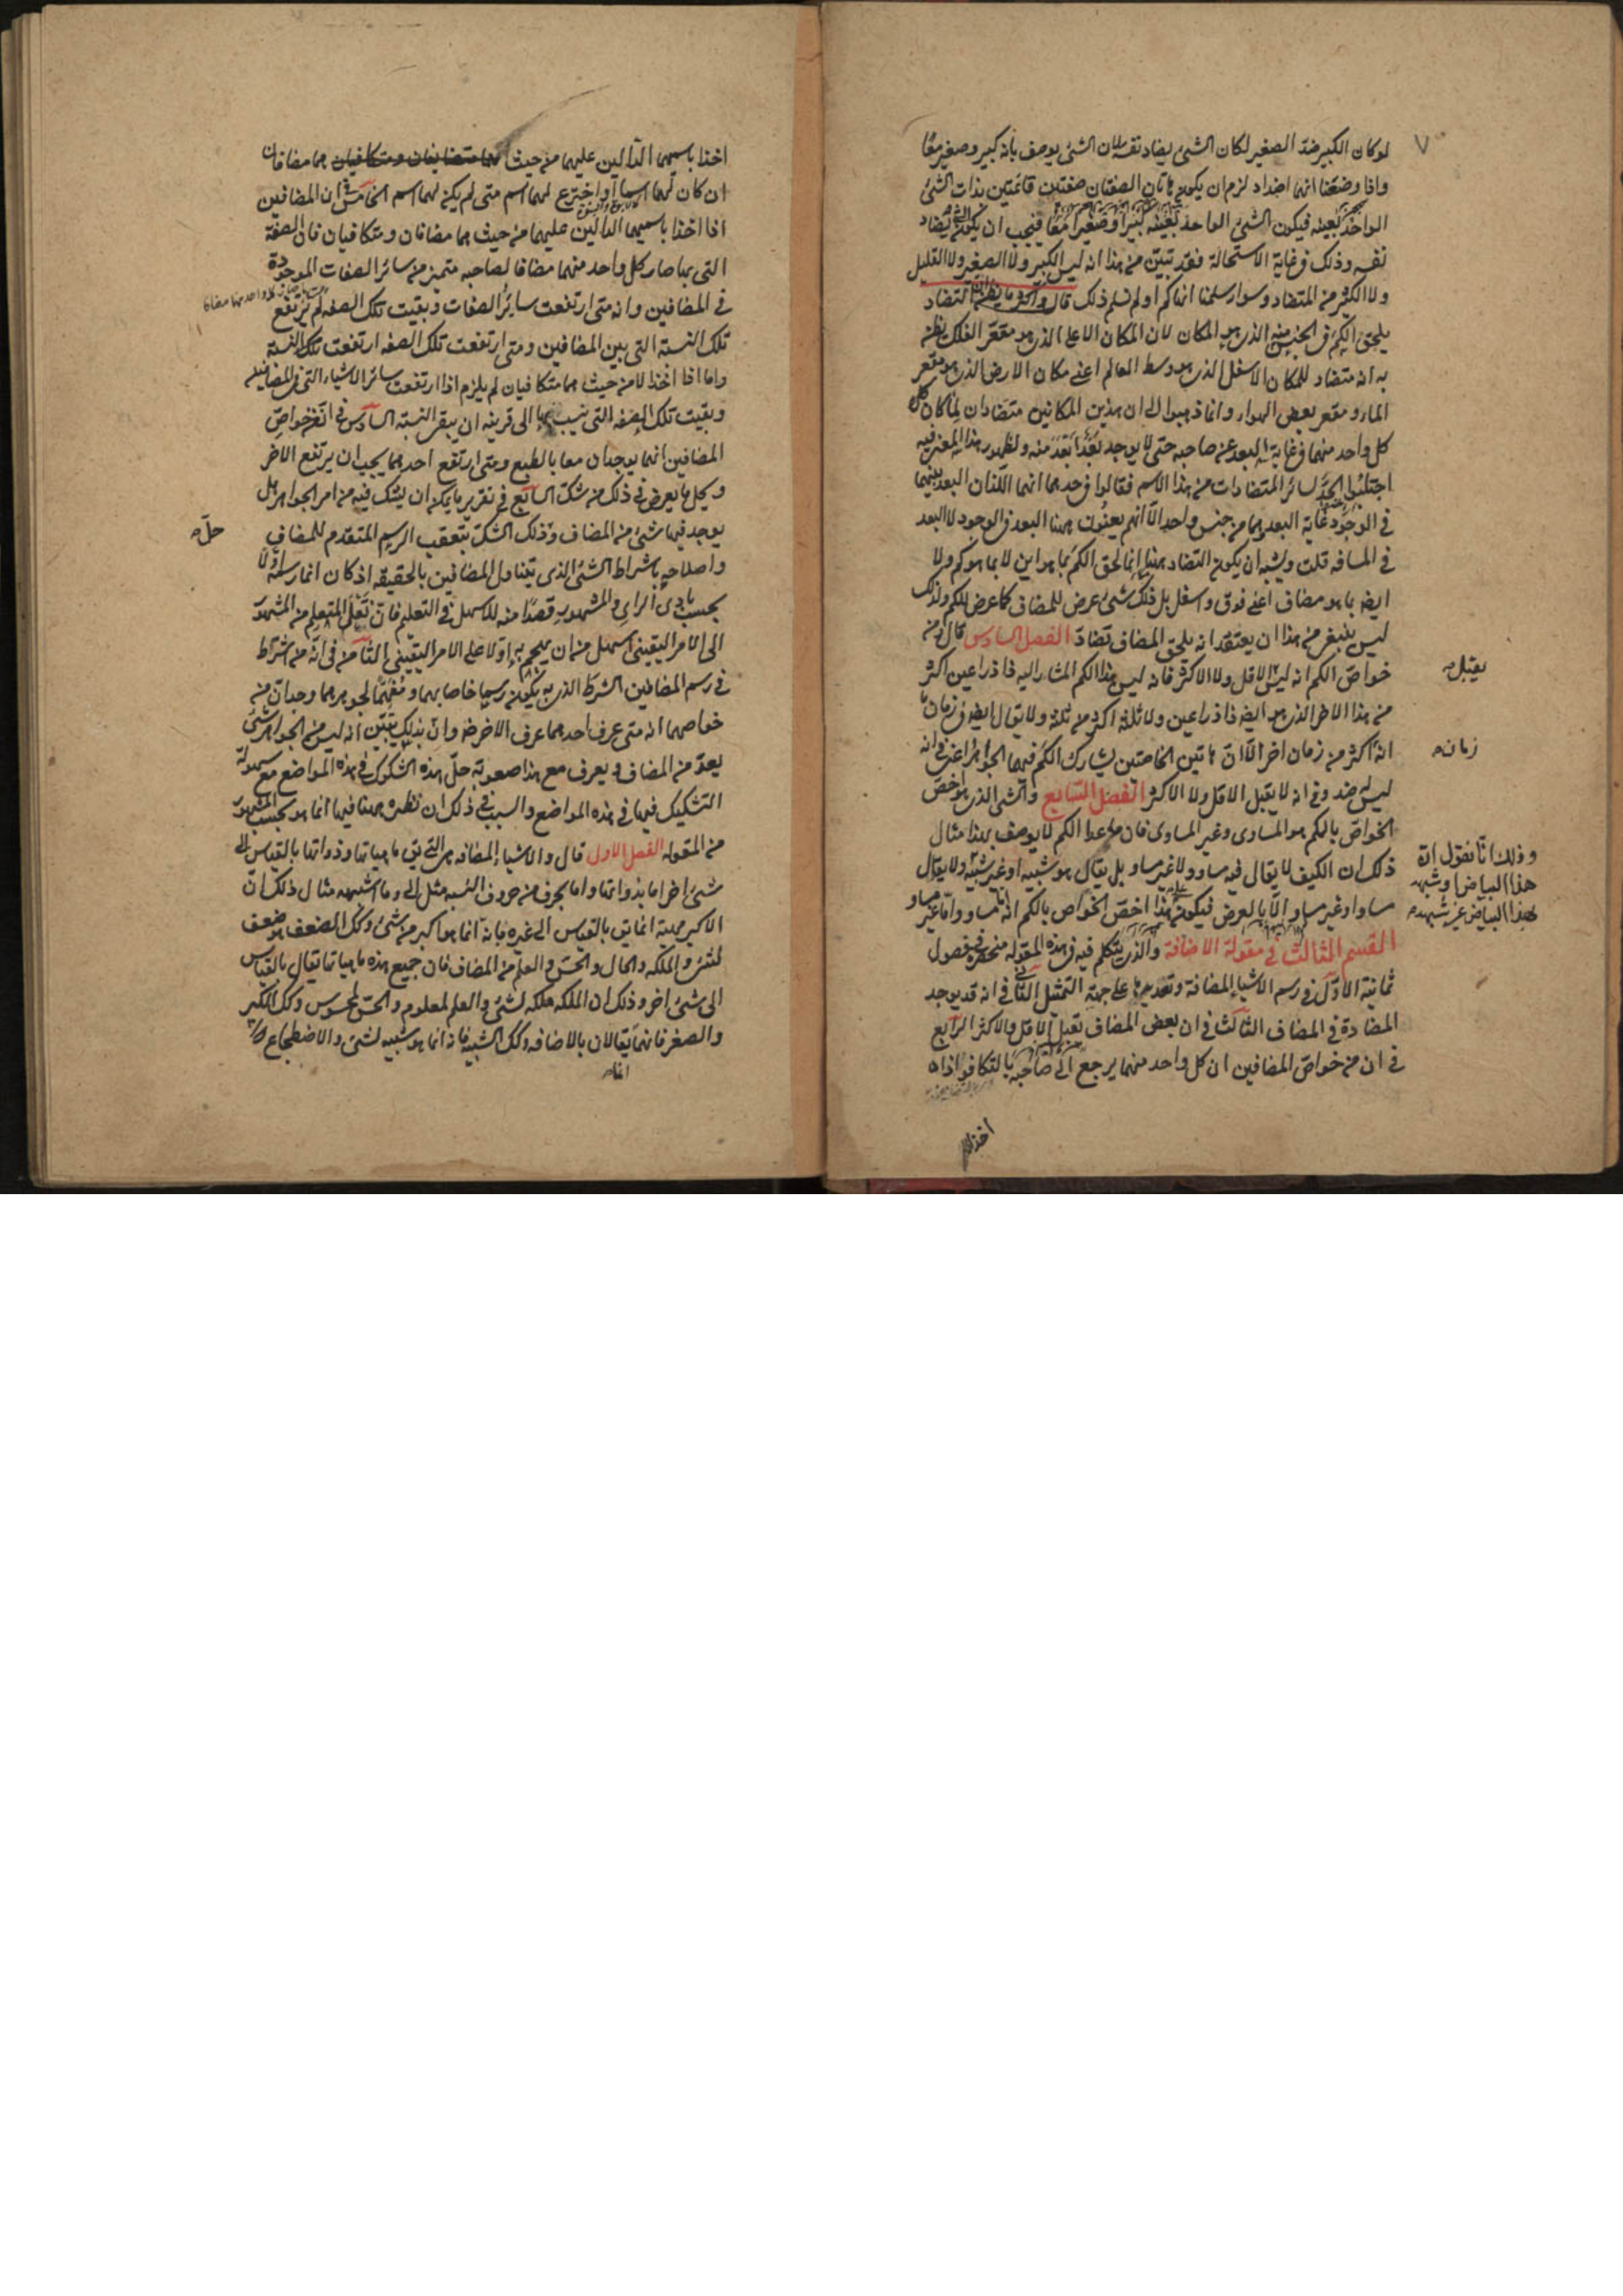 لو كان الكبير ضد الصغير لكان الشئ يضاد نفسه لان الشئ يوصف بانه كبير وصغير معًا
واذا وضعنا انها اضداد لزم ان يكون هاتان الصفتان صفتين قائمتين بذات الشئ
الواحد بعينه فيكون الشئ الواحد بعينه كبيرا وصغيرا معًا فيجب ان يكون الشئ يضاد
نفسه وذلك فى غاية الاستحالة فقد تبين من هذا انه ليس الكبير ولا الصغير ولا القليل
ولا الكثير من المتضاد وسواء سلمنا انها كم او لم نسلم ذلك قال واكثر ما يظن التضاد
يلحق الكم فى الجنس منه الذى هو المكان لان المكان الاعلى الذى هو مقعر الفلك يظن
به انه متضاد للمكان الاسفل الذى هو وسط العالم اعنى مكان الارض الذى هو مقعر
الماء ومقعر بعض الهواء وانما ذهبوا الى ان هذين المكانين متضادان لما كان
كل واحد منهما فى غاية البعد عن صاحبه حتى لا يوجد بعد ابعد منه ولظهور هذا المعنى فيه
اجتلبوا الحد لسائر المتضادات من هذا الاسم فقالوا فى حدهما انهما اللذان البعد بينهما
فى الوجود غاية البعد وهما من جنس واحد الا انهم يعنون ههنا البعد فى الوجود لا البعد
فى المسافه قلت ويشبه ان يكون التضاد ههنا انما لحق الكم بما هو اين لا بما هو كم ولا
ايضا بما هو مضاف اعنى فوق واسفل بل ذلك شئ عرض للمضاف كما عرض للكم ولذلك
ليس ينبغى من هذا ان يعتقد انه يلحق المضاف تضاد الفصل السادس قال ومن
خواص الكم انه ليس الاقل ولا الاكثر فانه ليس هذا الكم المشار اليه ذا ذراعين اكثر
يقبل
من هذا الاخر الذى هو ايضا ذا ذراعين ولا ثلثة اكثر من ثلثة ولا يقال ايضا فى زمان
انه اكثر من زمان اخر الا ان هاتين الخاصتين يشارك الكم فيهما الجواهر اعنى فى انه
زمان
ليس له ضد وفى انه لا يقبل الاقل ولا الاكثر الفصل السابع والشئ الذى هو اخص
الخواص بالكم هو المساوى وغير المساوى فان ما عدا الكم لا يوصف بهذا مثال
ذلك ان الكيف لا يقال فيه مساو ولا غير مساو بل يقال هو شبيه او غير شبيه ولا يقال
وذلك انا نقول ان
هذا البياض شبيه
بهذا البياض غير شبيه
مساو او غير مساو الا بالعرض فيكون هذا اخص الخواص بالكم انه مساو واما غير مساو
القسم الثالث فى مقولة الاضافة والذى يتكلم فيه فى هذه المقوله منحصر فى فصول
ثمانية الاول فى رسم الاشياء المضافة وتعديدها على جهة التمثيل الثانى فى انه قد يوجد
المضادة فى المضاف الثالث فى ان بعض المضاف يقبل الاقل والاكثر الرابع
فى ان من خواص المضافين ان كل واحد منهما يرجع الى صاحبه بالتكافؤ اذا
اخذا
اخذا باسميهما الدالين عليهما من حيث هما مضافان
ان كان لهما اسما او اخترع لهما اسم متى لم يكن لهما اسم الخامس ان المضافين
اذا اخذا باسميهما الدالين عليهما من حيث هما مضافان ومتكافيان فان الصفة
التى بها صار كل واحد منهما مضافا لصاحبه متميز من سائر الصفات الموجودة
فى المضافين وانه متى ارتفعت سائر الصفات وبقيت تلك الصفه لم ترتفع
تلك النسبة التى بين المضافين ومتى ارتفعت تلك الصفه ارتفعت تلك النسبة
واما اذا اخذا لا من حيث هما متكافيان لم يلزم اذا ارتفعت سائر الاشياء التى فى المضافين
وبقيت تلك الصفه التى نسب بها الى قرينه ان يبقى النسبة السادس فى ان من خواص
المضافين انهما يوجدان معا بالطبع ومتى ارتفع احدهما يجب ان يرتفع الاخر
وحل ما يعرض فى ذلك من شك السابع فى تقرير ما يمكن ان يشك فيه من امر الجواهر هل
يوجد فيها شئ من المضاف وذلك الشك بتعقب الرسم المتقدم للمضاف
حل
واصلاحه باشراط الشئ الذى يتناول المضافين بالحقيقه اذ كان انما رسمه اولا
بحسب بادى الراى والمشهور قصدًا منه للاسهل فى التعليم فان نقل المتعلم من المشهور
الى الامر اليقينى اسهل من ان يهجم به اولا على الامر اليقينى الثامن فى انه من شرائط
فى رسم المضافين الشرط الذى به يكون رسما خاصا بهما ومفهمًا لجوهرهما وجد ان من
خواصهما انه متى عرف احدهما عرف الاخر ضرورة وان بذلك يتبين انه ليس من الجواهر شئ
يعد من المضاف ويعرف مع هذا صعوبة حل هذه الشكوك فى هذه المواضع مع سهولة
التشكيك فيها فى هذه المواضع والسبب فى ذلك ان نظره ههنا فيها انما هو بحسب المشهور
من المقوله الفصل الاول قال والاشياء المضافه هى التى يق ماهياتها وذواتها بالقياس الى
شئ اخر اما بذواتها واما بحرف من حروف النسبه مثل الى وما اشبهه مثال ذلك ان
الاكبر ماهيته انما يق بالقياس الى غيره فانه انما هو اكبر من شئ وكك الضعف هو ضعف
لشئ والملكه والحال والحس والعلم من المضاف فان جميع هذه ماهياتها تقال بالقياس
الى شئ اخر وذلك ان الملكه ملكه لشئ والعلم لمعلوم والحس لمحسوس وكك الكبير
والصغير فانهما يقالان بالاضافه وكك الشبيه فانه انما هو شبيه لشئ والاضطجاع